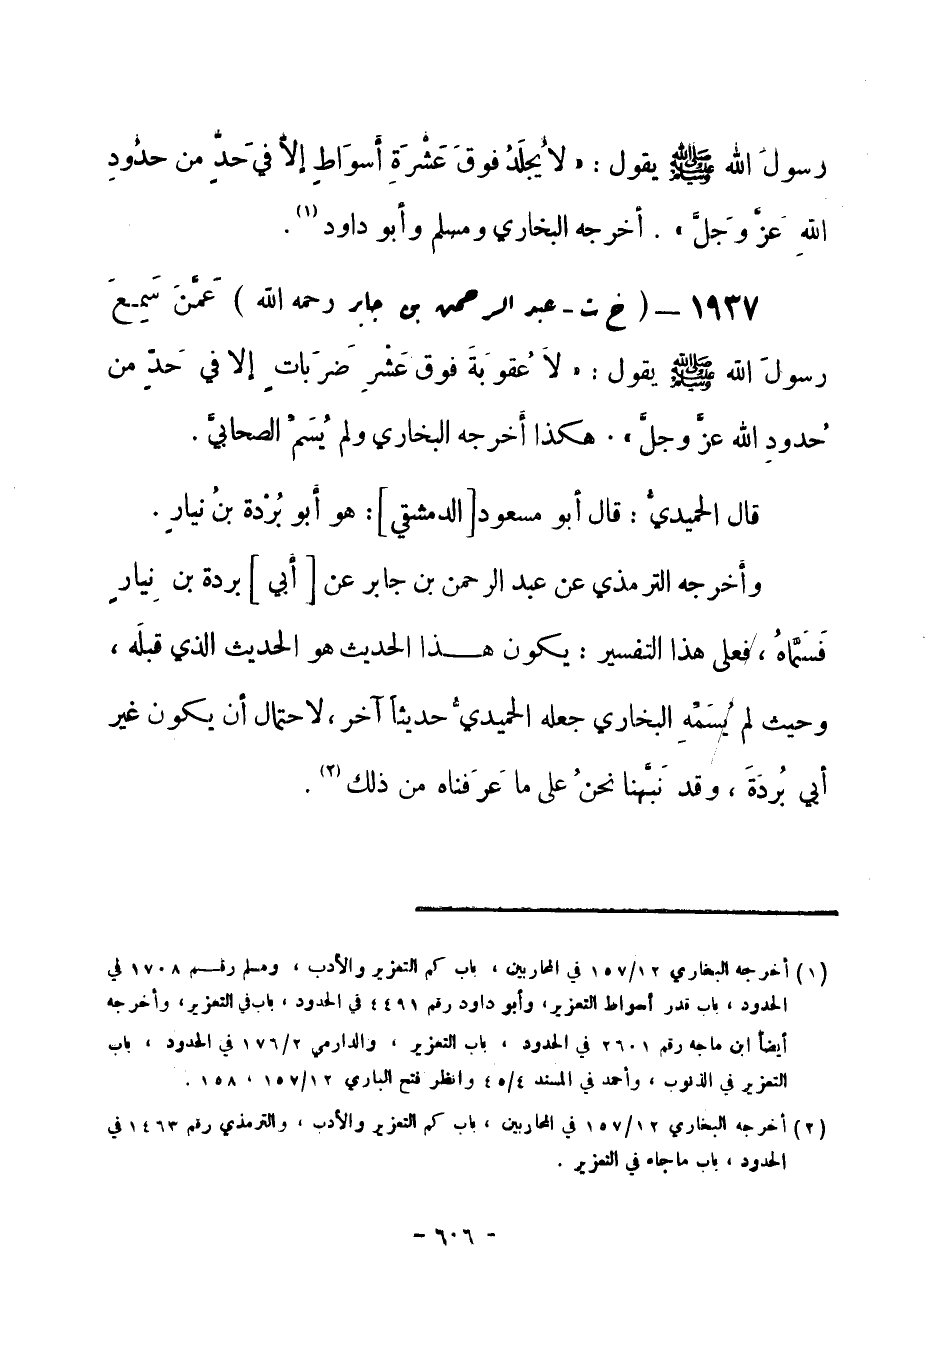 رسولَ الله ﷺ يقول : « لا يُجلَدُ فوقَ عَشْرَةِ أسوَاطٍ إلاَّ في حَدٍّ من حدُودِ
اللهِ عَزَّ وَجَلَّ » . أخرجه البخاري ومسلم وأبو داود (١).
١٩٣٧ – ( خ ت - عبد الرحمن بن جابر رحمه الله ) عَمَّنَ سَمِـعَ
رسولَ الله ﷺ يقول : « لاَ عُقوبَةَ فوق عَشْرِ ضَرَبَاتٍ إلا في حَدٍّ من
حُدودِ الله عزَّ وجلَّ » . هكذا أخرجه البخاري ولم يُسَمِّ الصحابيَّ .
قال الحميديُّ : قال أبو مسعود [الدمشقي] : هو أبو بُرْدة بنُ نيارٍ .
وأخرجه الترمذي عن عبد الرحمن بن جابر عن [ أبي ] بردة بن نِيارٍ
فَسَمَّاهُ ، فعلى هذا التفسير : يكون هـــذا الحديث هو الحديث الذي قبلَه ،
وحيث لم يُسَمِّهِ البخاري جعله الحميديُّ حديثاً آخر ، لاحتمال أن يكون غير
أبي بُردَةَ ، وقد نَبَّهنا نحنُ على ما عَرَفناه من ذلك (٢) .
(١) أخرجه البخاري ١٥٧/١٢ في المحاربين ، باب كم التعزير والأدب ، ومسلم رقـــم ١٧٠٨ في
الحدود ، باب قدر أسواط التعزير ، وأبو داود رقم ٤٤٩١ في الحدود ، باب في التعزير ، وأخرجه
أيضاً ابن ماجه رقم ٢٦٠١ في الحدود ، باب التعزير ، والدارمي ١٧٦/٢ في الحدود ، باب
التعزير في الذنوب ، وأحمد في المسند ٤٥/٤ وانظر فتح الباري ١٥٧/١٢ ، ١٥٨ .
(٢) أخرجه البخاري ١٥٧/١٢ في المحاربين ، باب كم التعزير والأدب ، والترمذي رقم ١٤٦٣ في
الحدود ، باب ماجاء في التعزير .
- ٦٠٦ -